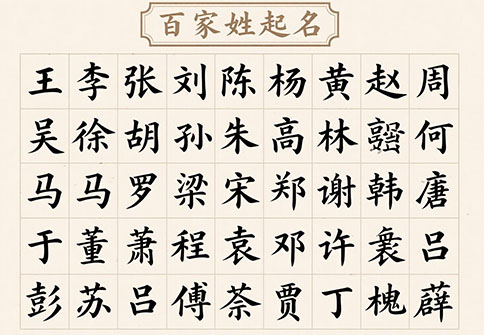 百家姓起名
王李张刘陈杨黄赵周
吴徐胡孙朱高林何
马马罗梁宋郑谢韩唐
于董萧程袁邓许吕
彭苏吕傅荼贾丁槐薛